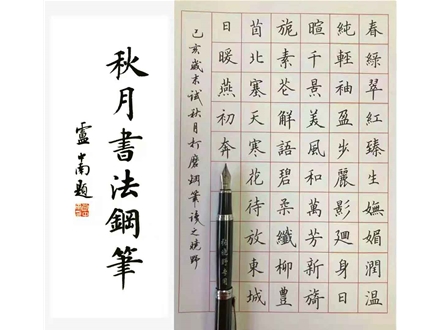 秋月書法鋼筆
盧中南題
春綠翠紅臻生嫵媚潤温
純輕袖盈步麗影廻身日
暄千景美風和萬芳新旖
旎素芲解語碧柔纖柳豊
茵北塞天寒花待放東城
日暖燕初奔
己亥歲末試秋月打磨鋼筆讀之曉野